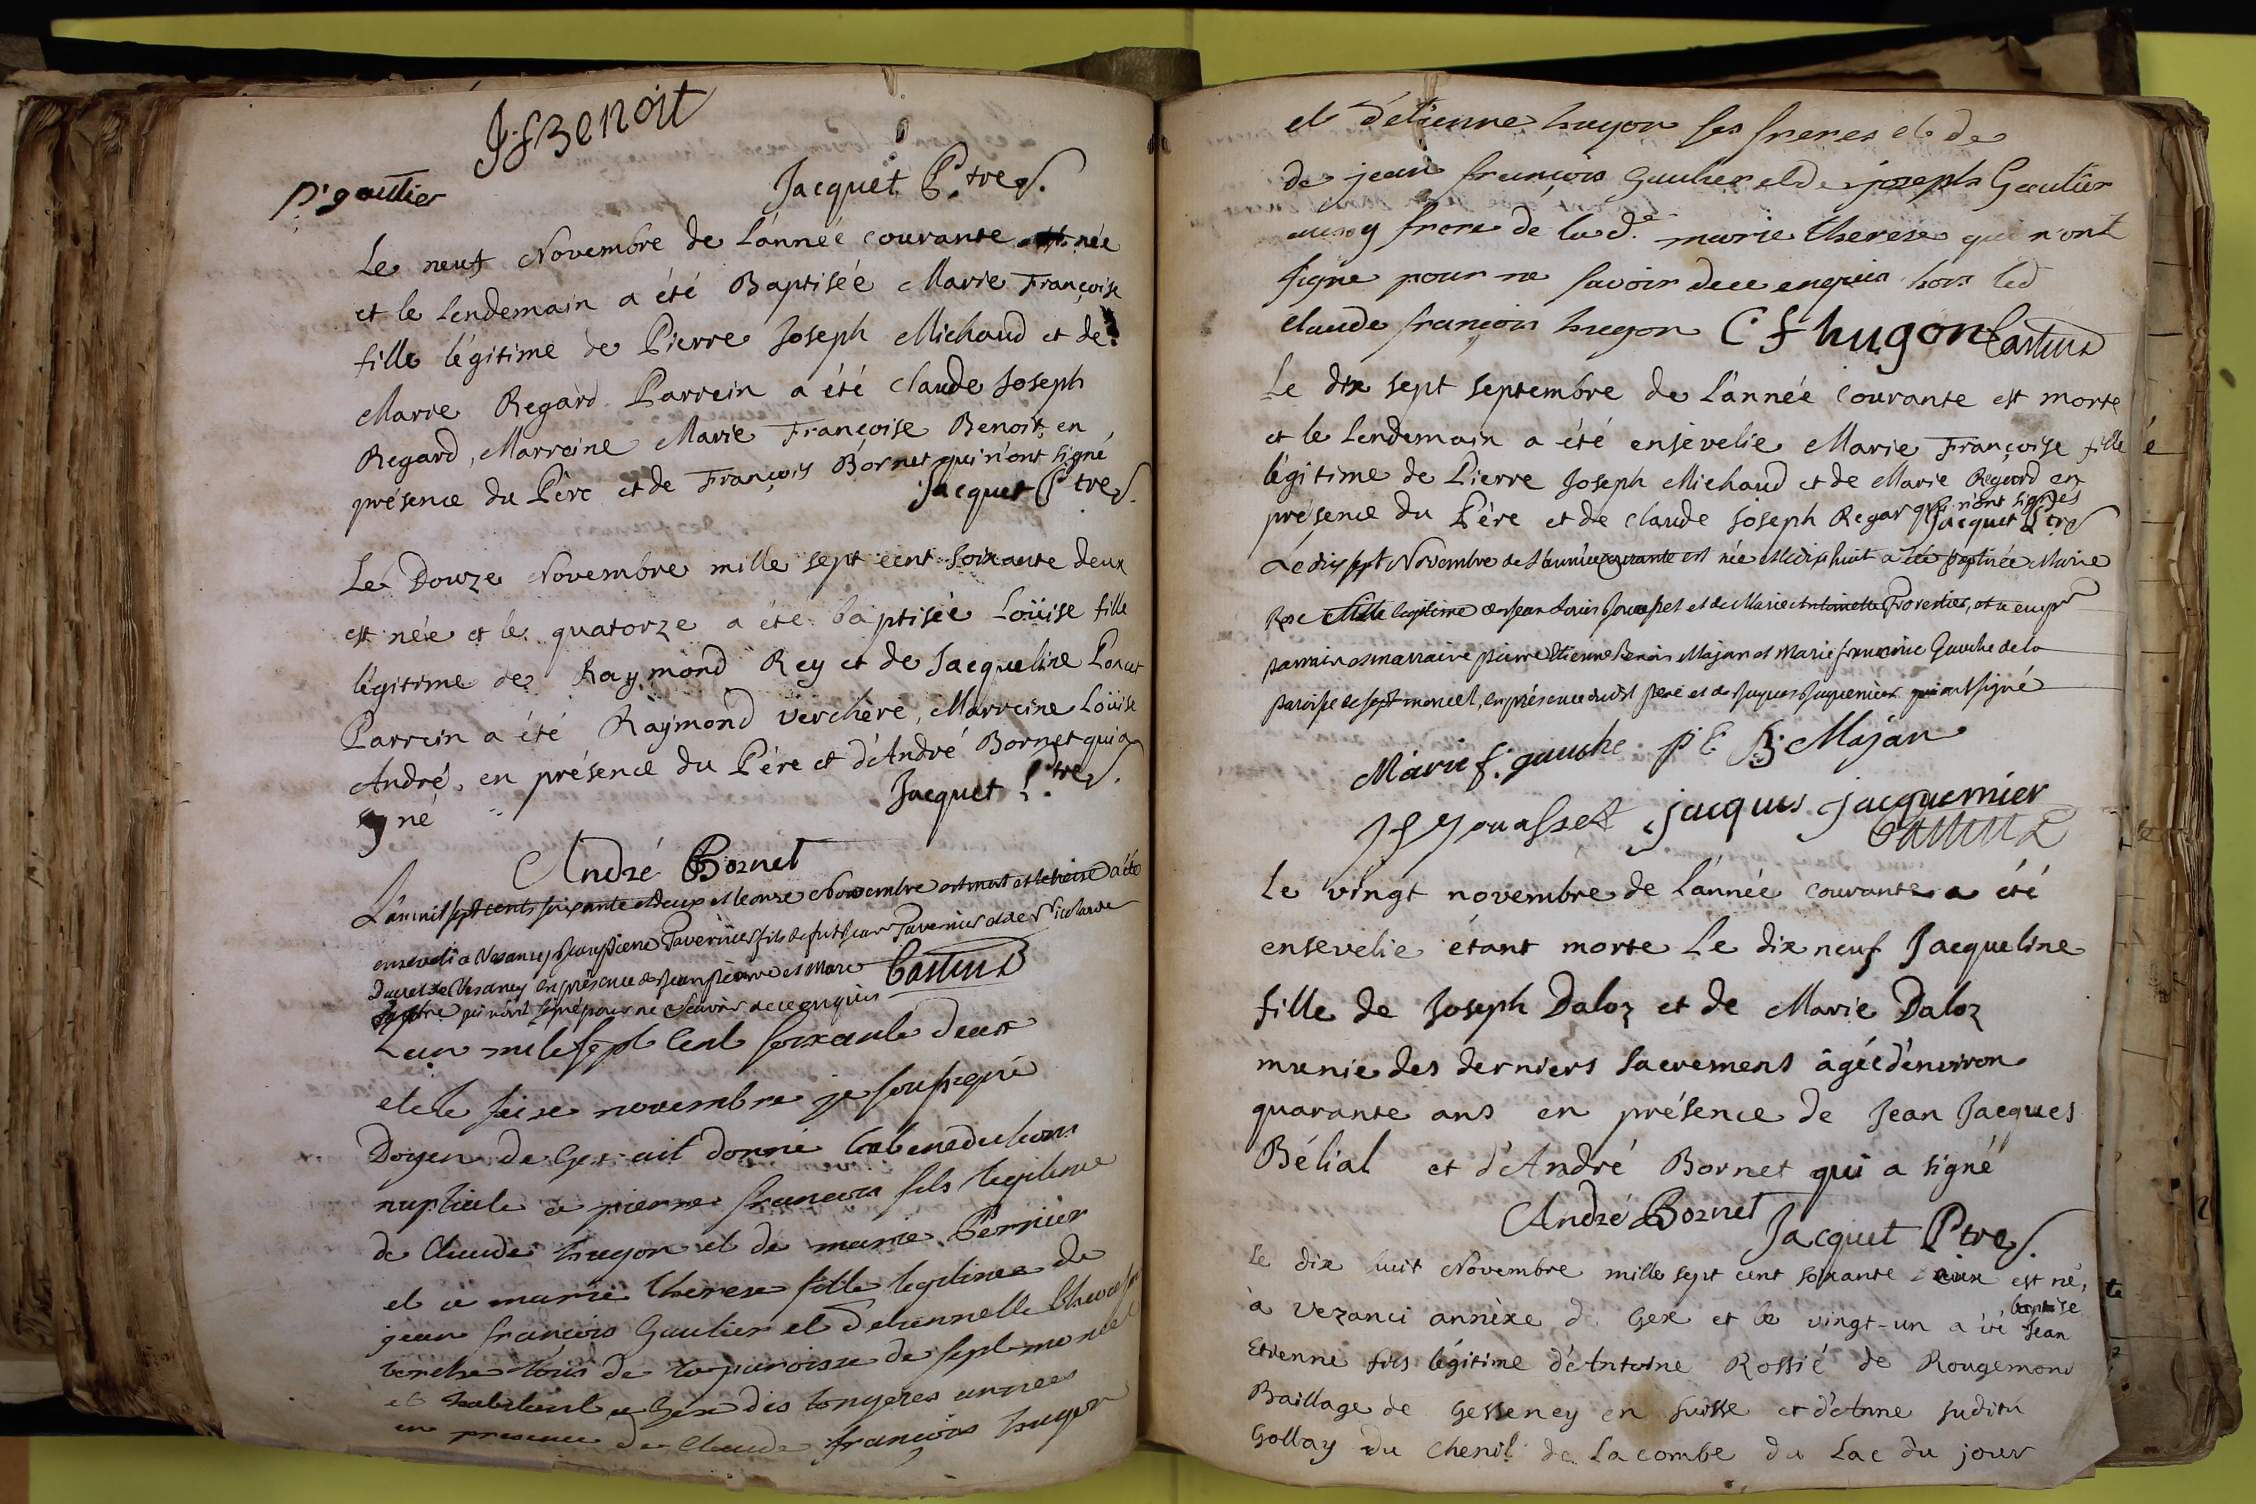 J f Benoit
p. gautier
Jacquet P.tre
Le neuf Novembre de l'année courante est née
et le lendemain a été Baptisée Marie Françoise
fille légitime de Pierre Joseph Michaud et de
Marie Regard Parrein a été Claude Joseph
Regard, Marreine Marie Françoise Benoit, en
présence du Père et de François Bornet qui n'ont signé
Jacquet P.tre
Le Douze Novembre mille sept cent soixante deux
est née et le quatorze a été baptisée Loüise fille
légitime de Raymond Rey et de Jacqueline Poncet
Parrein a été Raymond Verchère, Marreine Loüise
André, en présence du Père et d'André Bornet qui a
signé
Jacquet P.tre
André Bornet
L'an mil sept cents soixante et deux et le onze Novembre est mort et le treise a été
enseveli a Vesancy Jean Pierre Tavernier fils de fut Jean Tavernier et de Nicolarde
Ducret de Vesancy en présence de Jean Pierre et Marc
qui n'ont signé pour ne sçavoir de ce enquis Castin
L'an mil sept cent soixante deux
et le seize novembre je soussigné
Doyen de Gex ait donné la benediction
nuptiale a pierre francois fils legitime
de Claude hugon et de marie Pernier
et a marie therese fille legitime de
jean françois Gautier et d'etiennette
tous de la paroisse de septmoncel
et habitant a Gex dès longues années
en presence de Claude françois hugon
et d'étienne hugon ses freres et de
de jean françois Gautier et de joseph Gautier
aussy frere de la d.e marie therese qui n'ont
signe pour ne savoir de ce enquis hors led
claude françois hugon C f hugon Castin
Le dix sept septembre de l'année courante est morte
et le lendemain a été ensevelie Marie Françoise fille
légitime de Pierre Joseph Michaud et de Marie Regard en
présence du Père et de Claude Joseph Regar qui n'ont signés
Jacquet P.tre
Le dix sept Novembre de l'année courante est née et le dix huit a été baptisée Marie
Rose fille legitime de Jean Louis et de Marie Antoinette Forestier, et a eu pr
parrain et marraine pierre Etienne Benoit Majan et Marie françoise Gauche de la
paroisse de septmoncel, en présence dudit père et de Jaques Jaquemier qui ont signé
Marie f. gauche p E B Majan
jacques jacquemier
Castin
Le vingt novembre de l'année courante a été
ensevelie étant morte Le dix neuf Jacqueline
fille de Joseph Daloz et de Marie Daloz
munie des derniers sacremens âgée d'environ
quarante ans en présence de Jean Jacques
Bélial et d'André Bornet qui a signé
André Bornet
Jacquet P.tre
Le dix huit Novembre mille sept cent soixante deux est né,
à Vezanci annèxe de Gex et le vingt-un a été baptisé Jean
Etienne fils légitime d'Antoine Rossié de Rougemond
Baillage de Gesseney en Suisse et d'Anne Judith
Gollay du Chenil de Lacombe du Lac du jour